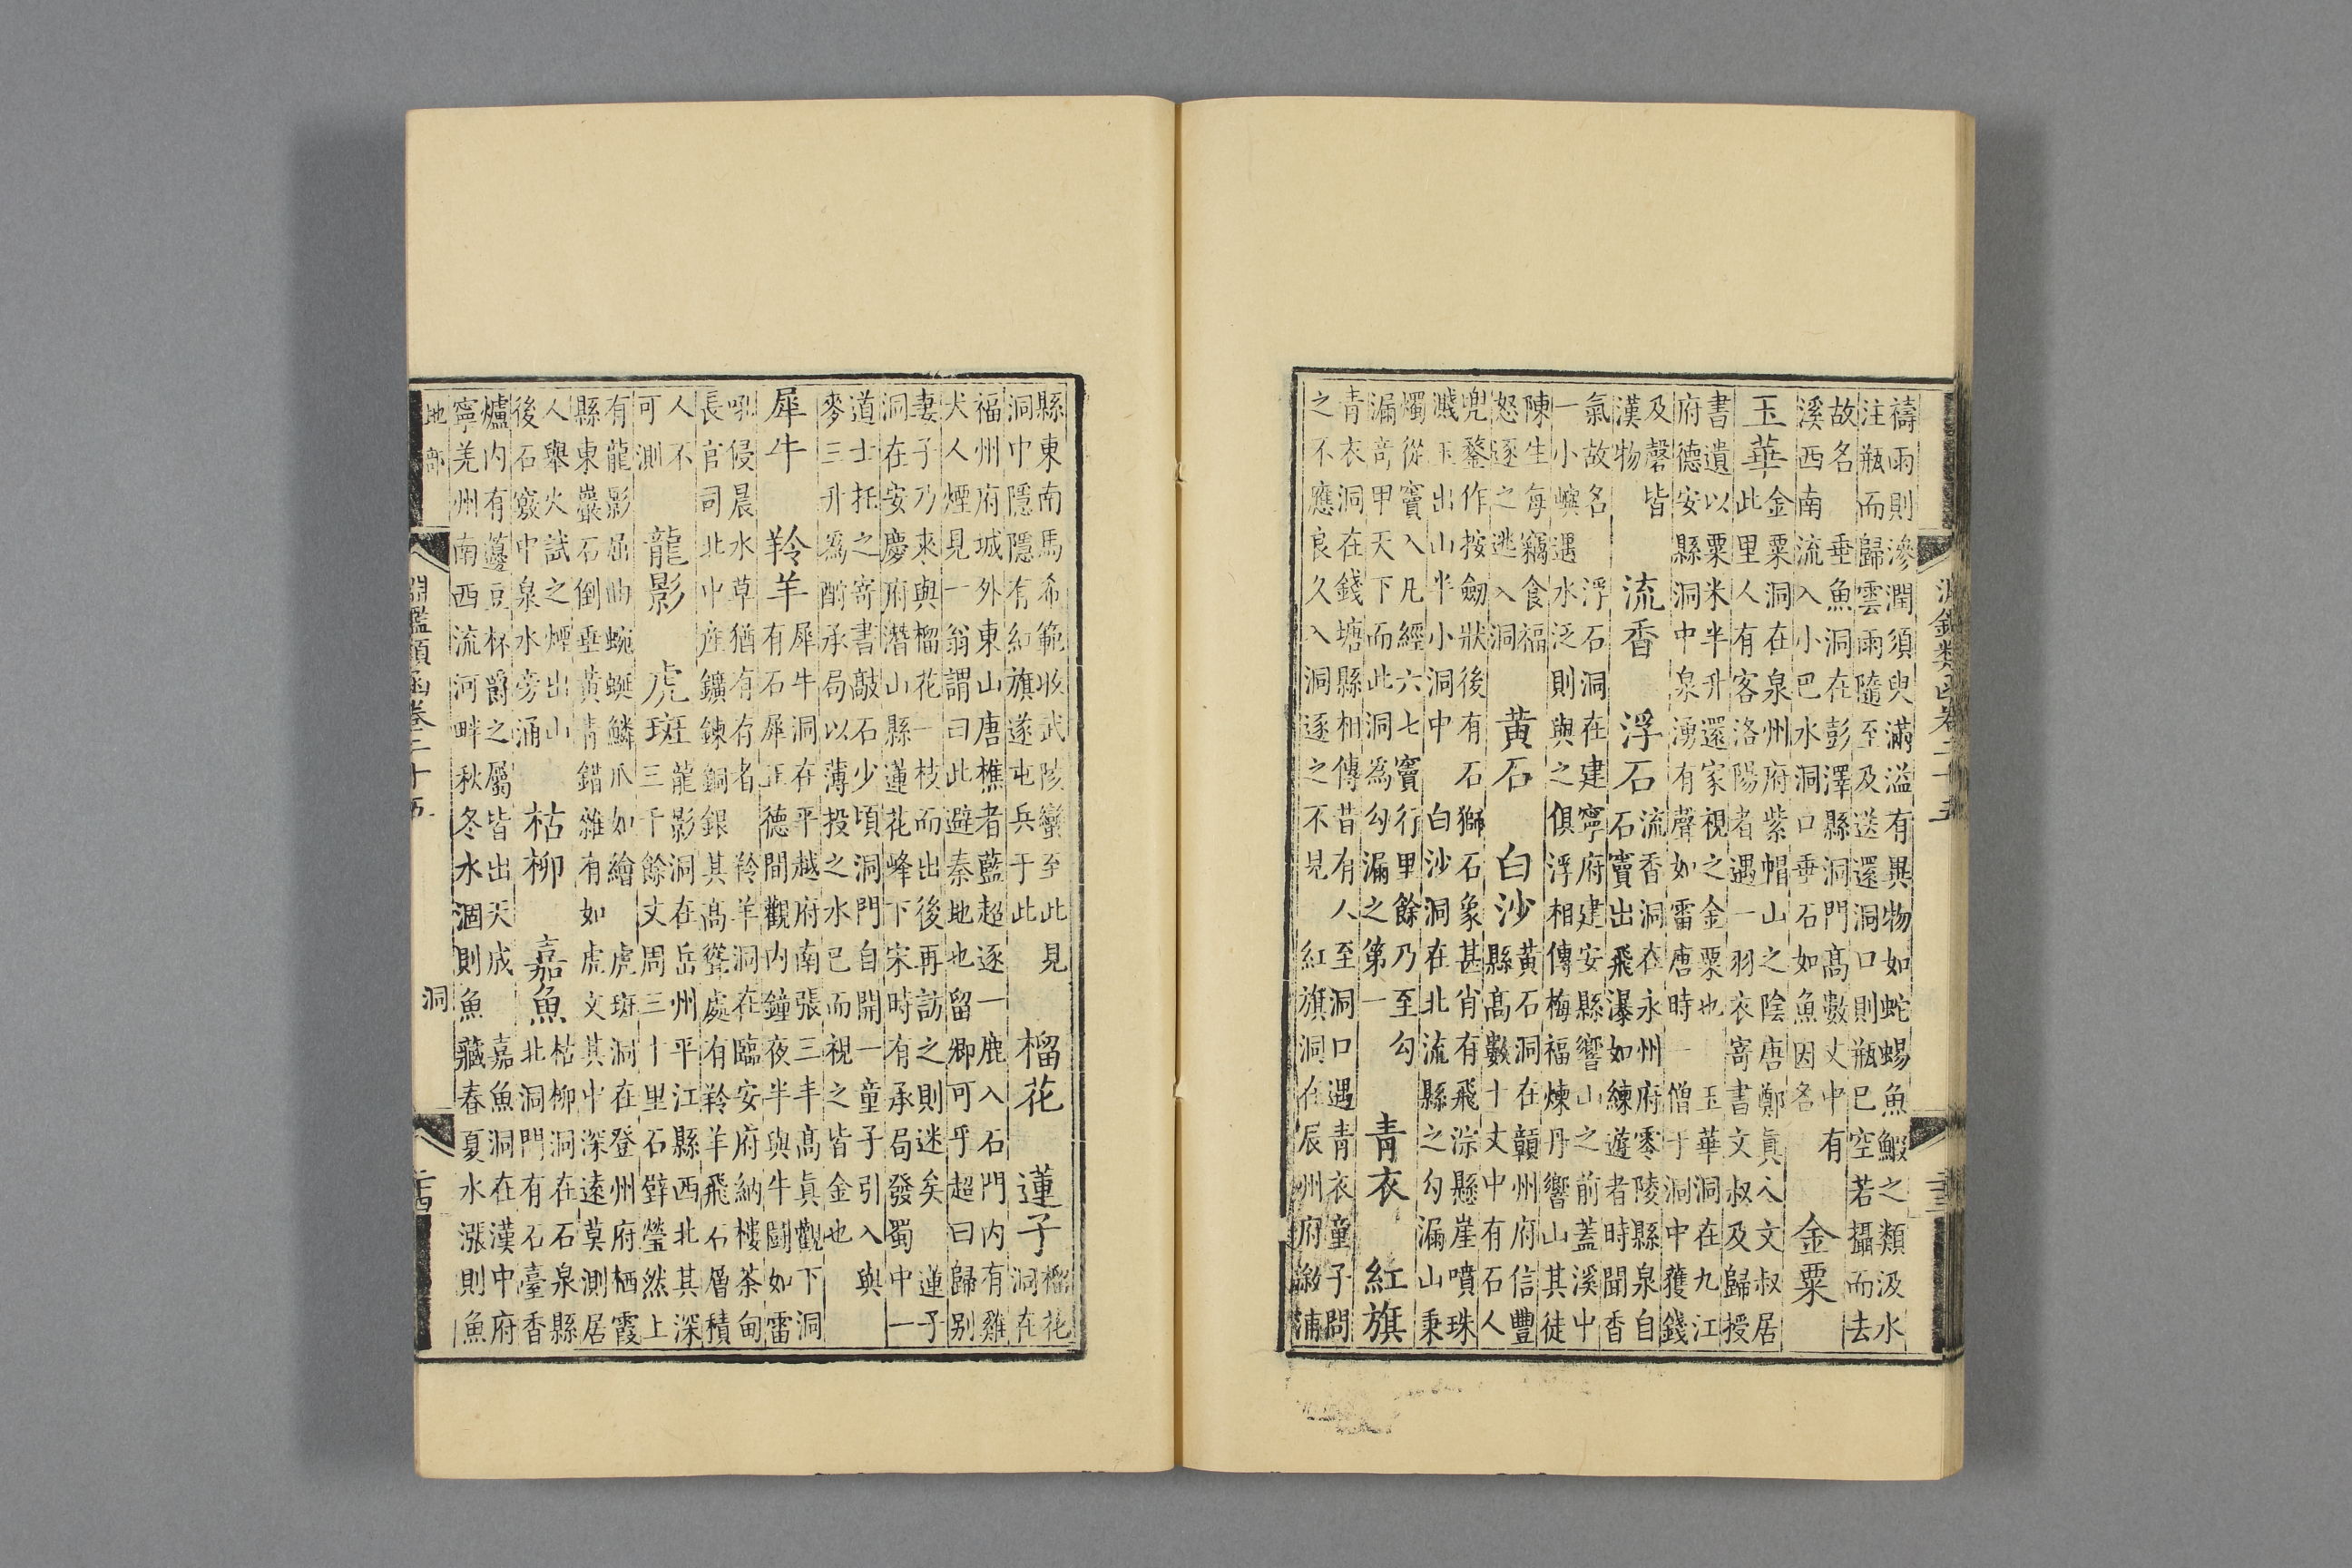 淵鑑類函卷二十五
禱雨則滲潤須臾滿溢有異物如蛇蜴魚鰕之類汲水
注瓶而歸雲雨隨至及送還洞口則瓶已空若攝而去
故名 垂魚洞在彭澤縣洞門高數丈中有
溪西南流入小巴水洞口垂石如魚因名
金粟
玉華
金粟洞在泉州府紫帽山之陰唐鄭眞人文叔居
此里人有客洛陽者遇一羽衣寄書文叔及歸授
書遺以粟米半升還家視之金粟也 玉華洞在九江
府德安縣洞中泉湧有聲如雷唐時一僧于洞中獲錢
及磬皆
漢物
流香 浮石
流香洞在永州府零陵縣泉自
石竇出飛瀑如練遊者時聞香
氣故名 浮石洞在建寧府建安縣響山之前蓋溪中
一小嶼遇水泛則與之俱浮相傳梅福煉丹響山其徒
陳生每竊食福
怒逐之逃入洞
黃石 白沙
黃石洞在贛州府信豐
縣高數十丈中有石人
兜鍪作按劒狀後有石獅石象甚肖有飛淙懸崖噴珠
濺玉出山半小洞中 白沙洞在北流縣之勾漏山秉
燭從竇入凡經六七竇行里餘乃至勾
漏奇甲天下而此洞為勾漏之第一
青衣 紅旗
青衣洞在錢塘縣相傳昔有人至洞口遇青衣童子問
之不應良久入洞逐之不見 紅旗洞在辰州府漵浦
縣東南馬希範收武陵蠻至此見
洞中隱隱有紅旗遂屯兵于此
榴花 蓮子
榴花
洞在
福州府城外東山唐樵者藍超逐一鹿入石門内有雞
犬人煙見一翁謂曰此避秦地也留卿可乎超曰歸别
妻子乃來與榴花一枝而出後再訪之則迷矣 蓮子
洞在安慶府潛山縣蓮花峰下宋時有承局發蜀中一
道士托之寄書敲石少頃洞門自開一童子引入與
麥三升爲酧承局以薄投之水已而視之皆金也
犀牛 羚羊
犀牛洞在平越府南張三丰高眞觀下洞
有石犀正德間觀内鐘夜半與牛鬭如雷
吼侵晨水草猶有有者 羚羊洞在臨安府納樓茶甸
長官司北中産鑛鍊銅銀其髙聳處有羚羊飛石層積
人不
可測
龍影 虎斑
龍影洞在岳州平江縣西北其深
三千餘丈周三十里石壁瑩然上
有龍影屈曲蜿蜒鱗爪如繪 虎斑洞在登州府栖霞
縣東巖石倒垂黃青錯雜有如虎文其中深遠莫測居
人舉火試之煙出山
後石竅中泉水旁涌
枯柳 嘉魚
枯柳洞在石泉縣
北洞門有石臺香
爐内有薹豆杯爵之屬皆出天成 嘉魚洞在漢中府
寧羌州南西流河畔秋冬水涸則魚藏春夏水漲則魚
地部 淵鑑類函卷二十五 洞